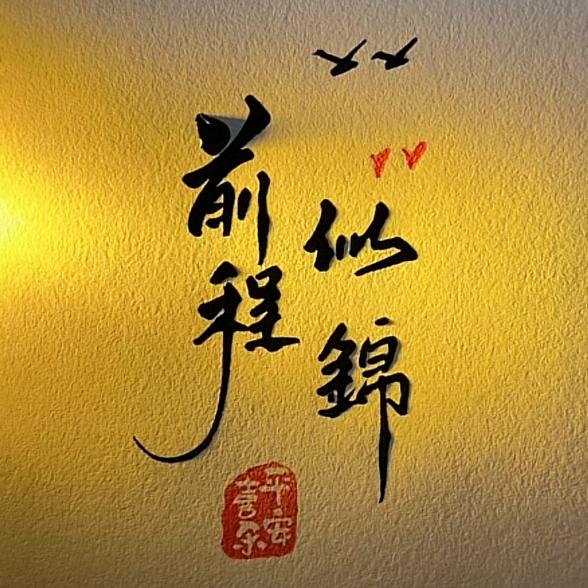 前程
似錦
平安
喜乐